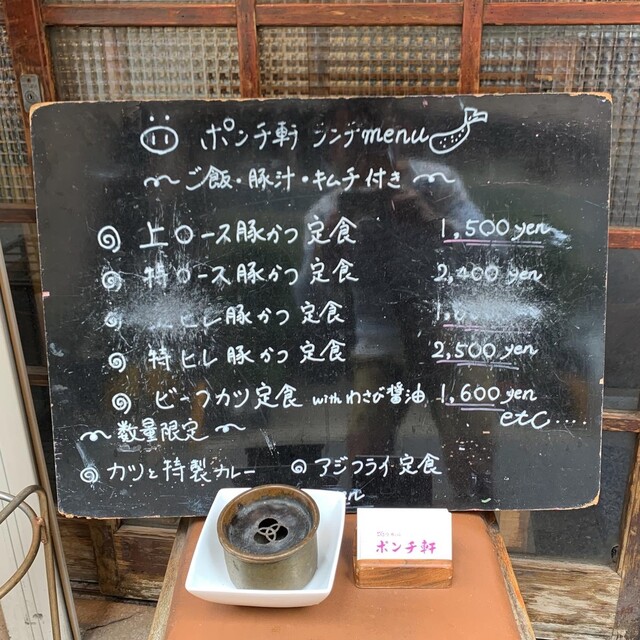 ポンチ軒 ランチmenu
ご飯・豚汁・キムチ付き
上ロース豚かつ定食 1,500yen
特ロース豚かつ定食 2,400yen
ヒレ豚かつ定食
特ヒレ豚かつ定食 2,500yen
ビーフカツ定食 withわさび醤油 1,600yen
etc....
数量限定
カツと特製カレー アジフライ定食
ポンチ軒